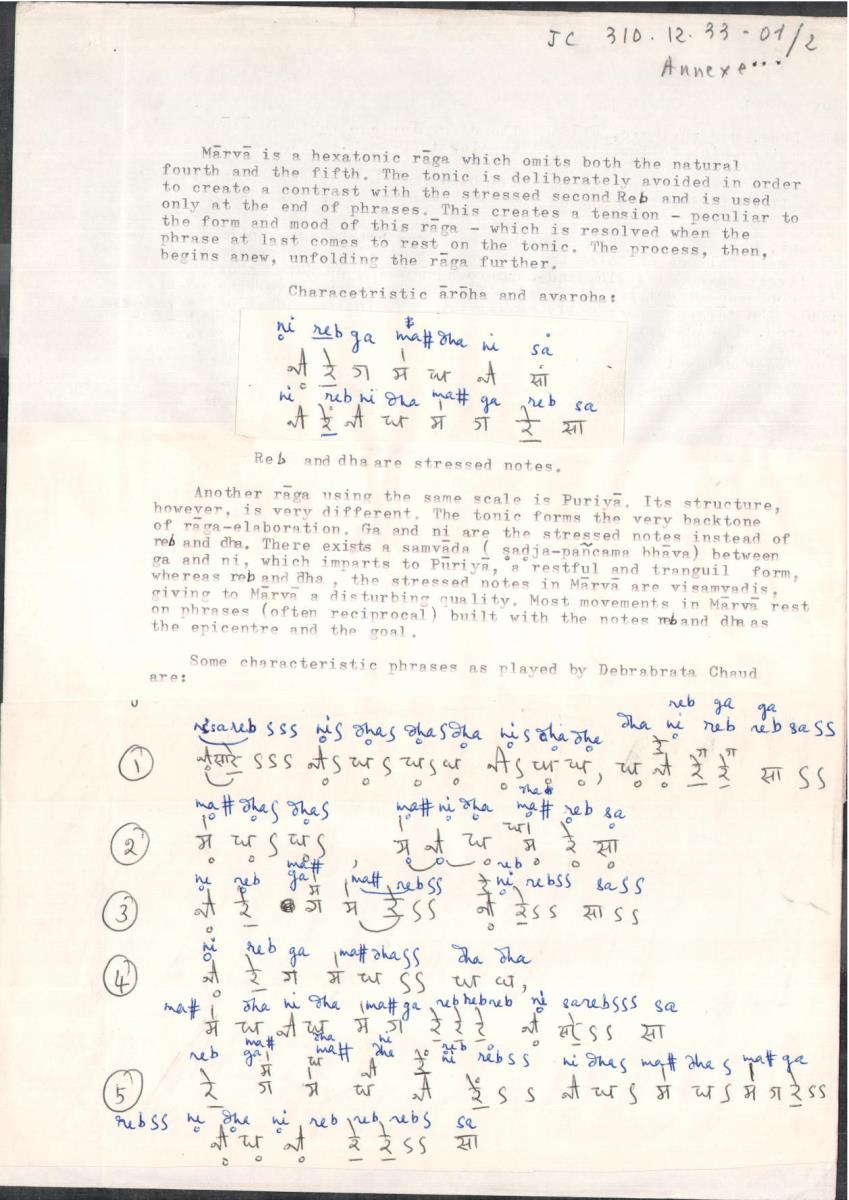 JC 310.12.33-01/2
Annexe...
Mārvā is a hexatonic rāga which omits both the natural
fourth and the fifth. The tonic is deliberately avoided in order
to create a contrast with the stressed second Reb and is used
only at the end of phrases. This creates a tension - peculiar to
the form and mood of this rāga - which is resolved when the
phrase at last comes to rest on the tonic. The process, then,
begins anew, unfolding the rāga further.
Characetristic ārōha and avaroha:
ni reb ga ma# dha ni sa
नी रे ग मं ध नी सां
ni reb ni dha ma# ga reb sa
नी रें नी ध मं ग रे सा
Reb and dha are stressed notes.
Another rāga using the same scale is Puriyā. Its structure,
however, is very different. The tonic forms the very backtone
of rāga-elaboration. Ga and ni are the stressed notes instead of
reb and dha. There exists a samvāda ( ṣadja-pañcama bhāva) between
ga and ni, which imparts to Pūriyā, a restful and tranguil form,
whereas reb and dha , the stressed notes in Mārvā are visamvadis,
giving to Mārvā a disturbing quality. Most movements in Mārvā rest
on phrases (often reciprocal) built with the notes reb and dha as
the epicentre and the goal.
Some characteristic phrases as played by Debrabrata Chaud
are:
reb ga ga
ni sa reb SSS ni S dha S dha S dha ni S dha dha dha ni reb reb sa SS
① नी सा रे S S S नी S ध S ध S ध नी S ध ध, ध नी रे रे सा S S
ma# dha S dha S ma# ni dha ma# reb sa
② मं ध S ध S , मं नी ध मं रे सा
ni reb ga ma# reb SS ni reb SS sa SS
③ नी रे ग मं रे S S नी रे S S सा S S
ni reb ga ma# dha SS dha dha
④ नी रे ग मं ध S S ध ध,
ma# dha ni dha ma# ga reb reb reb ni sa reb SSS sa
मं ध नी ध मं ग रे रे रे नी सा रे S S सा
reb ga ma# dha ni reb SS ni dha S ma# dha S ma# ga
⑤ रे ग मं ध नी रें S S नी ध S मं ध S मं ग रे S S
reb SS ni dha ni reb reb reb S sa
नी ध नी रे रे S S सा